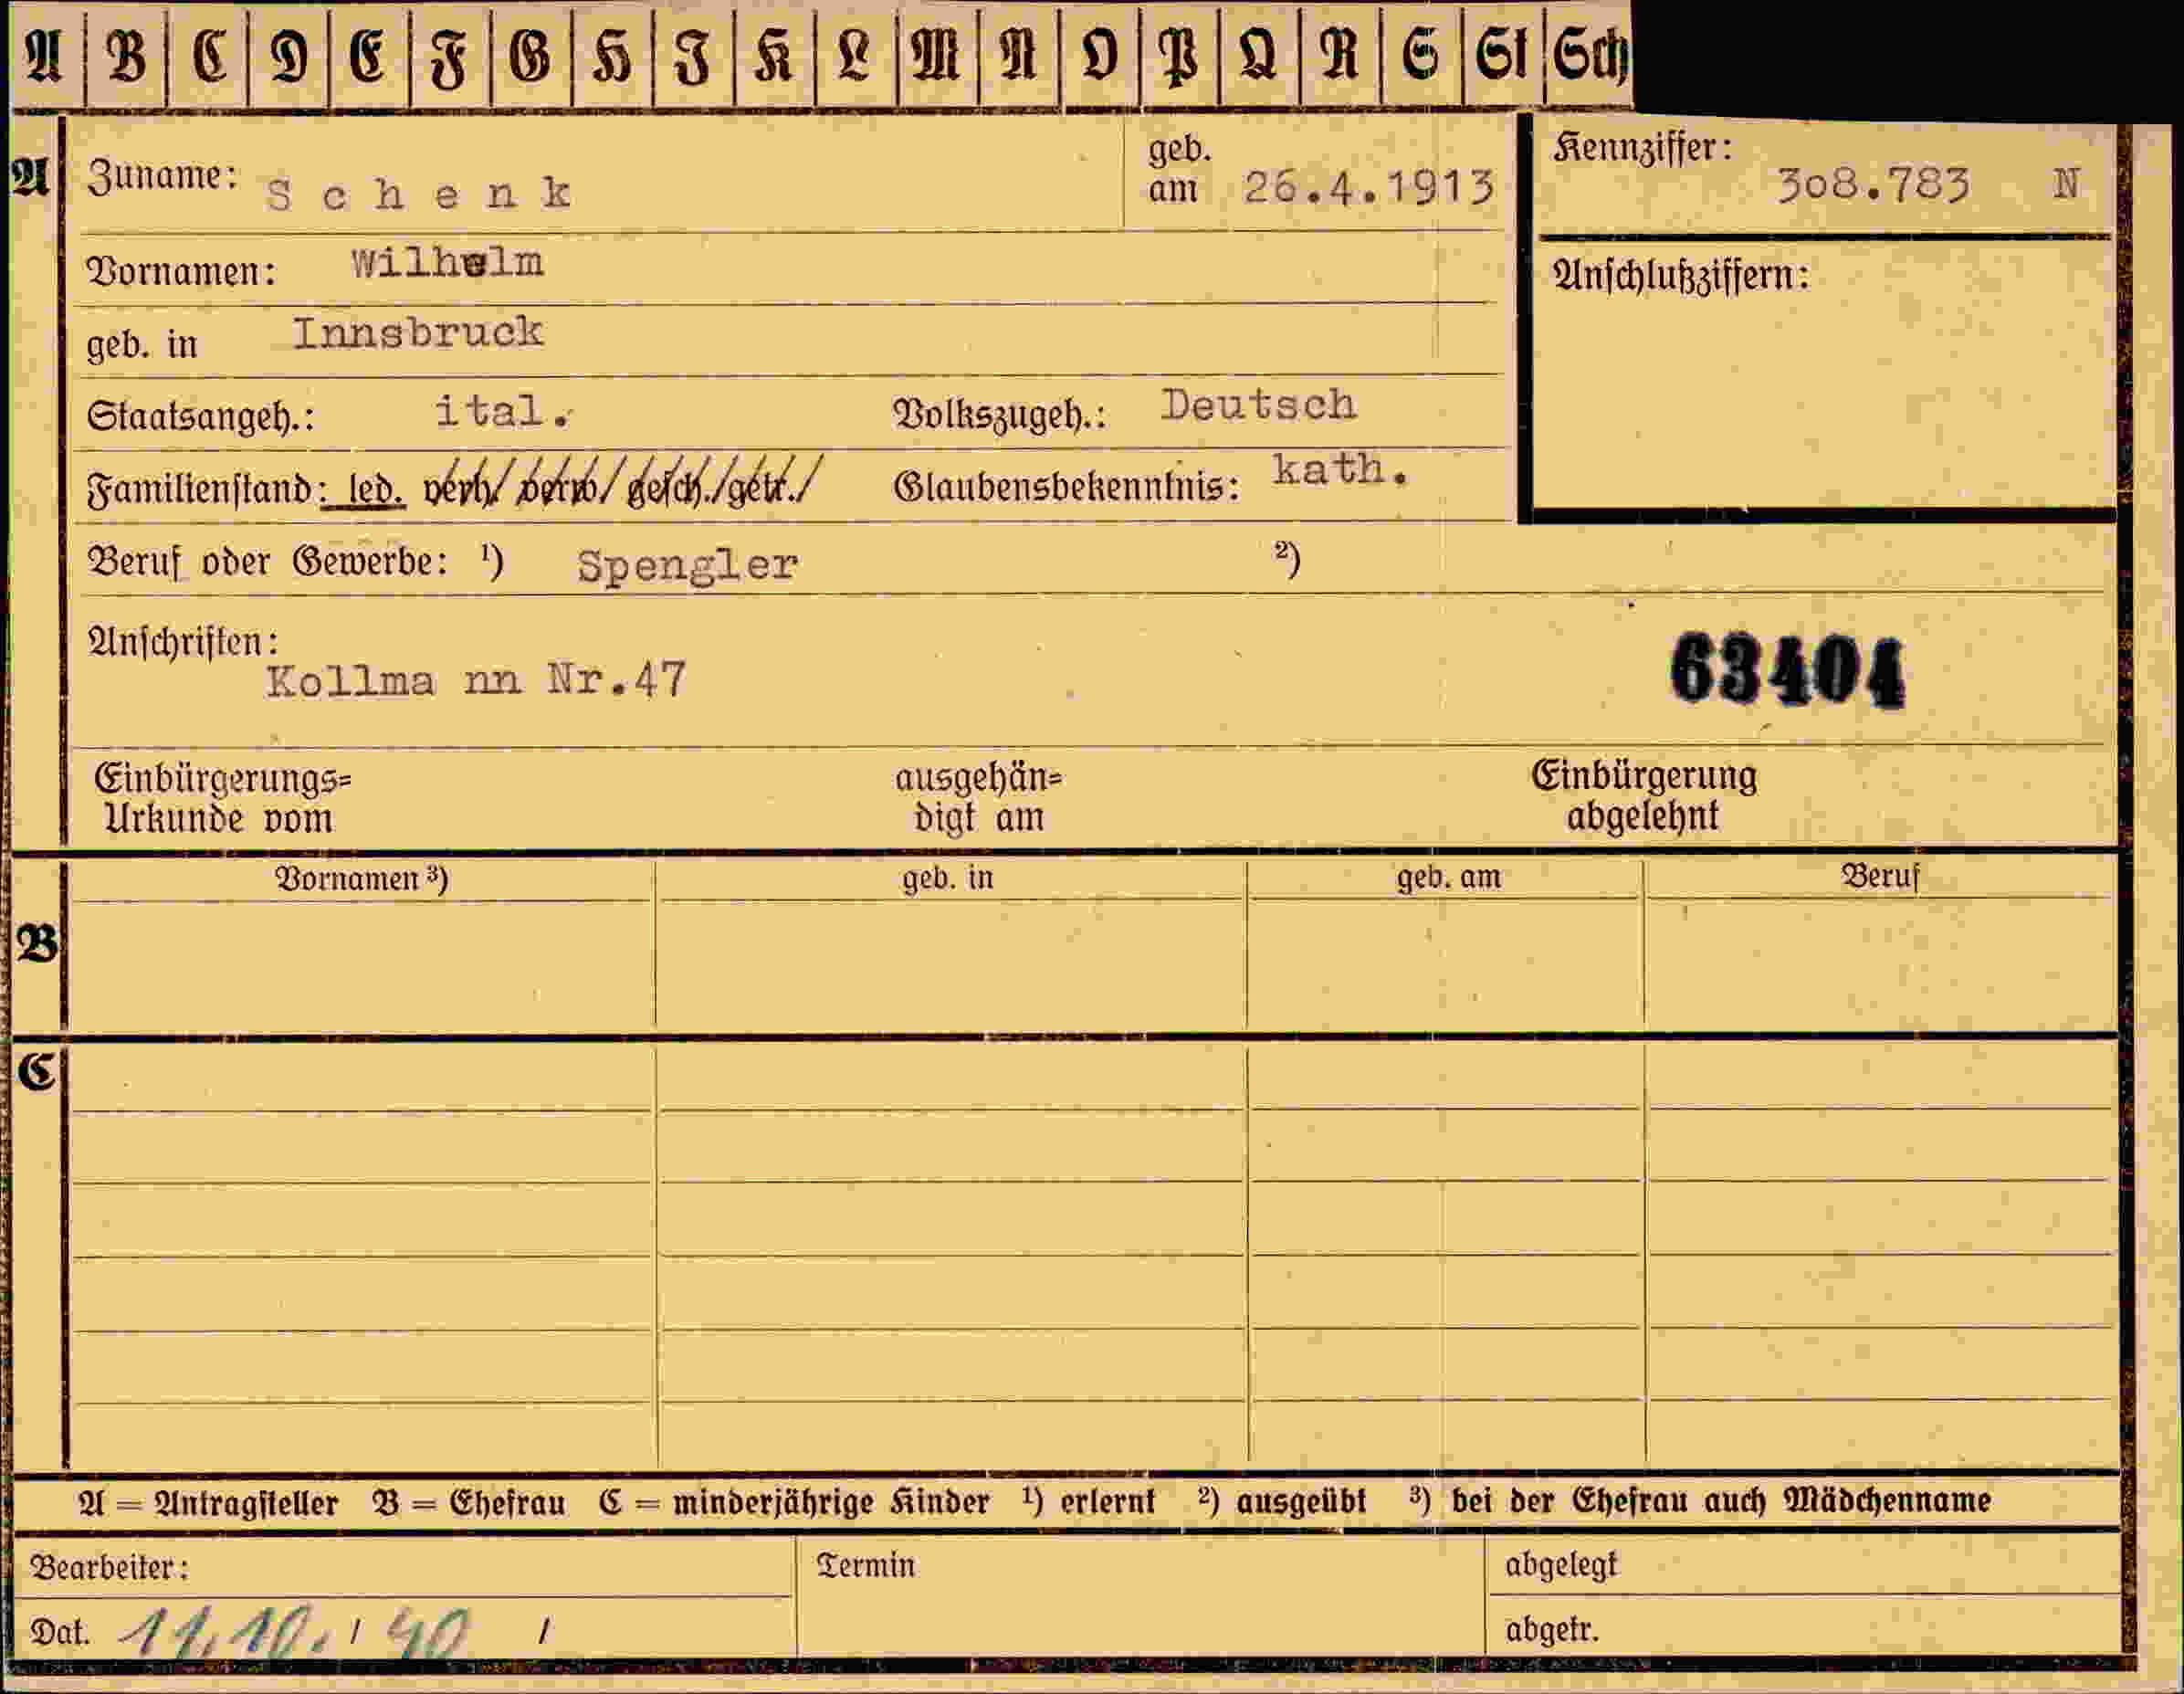 A B C D E F G H I K L M N O P Q R S St Sch
A Zuname: Schenk geb. am 26.4.1913 Kennziffer: 308.783 N
Vornamen: Wilhelm Anschlußziffern:
geb. in Innsbruck
Staatsangeh.: ital. Volkszugeh.: Deutsch
Familienstand: led. verh/ verw/ gesch./getr./ Glaubensbekenntnis: kath.
Beruf oder Gewerbe: ¹) Spengler ²)
Anschriften:
Kollma nn Nr.47 63404
Einbürgerungs= ausgehän= Einbürgerung
Urkunde vom digt am abgelehnt
Vornamen ³) geb. in geb. am Beruf
B
C
A = Antragsteller B = Ehefrau C = minderjährige Kinder ¹) erlernt ²) ausgeübt ³) bei der Ehefrau auch Mädchenname
Bearbeiter: Termin abgelegt
Dat. 11.10. / 40 / abgetr.